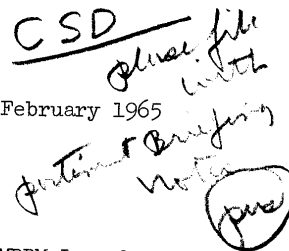 CSD
please file
with
February 1965
pertinent Briefing
notes